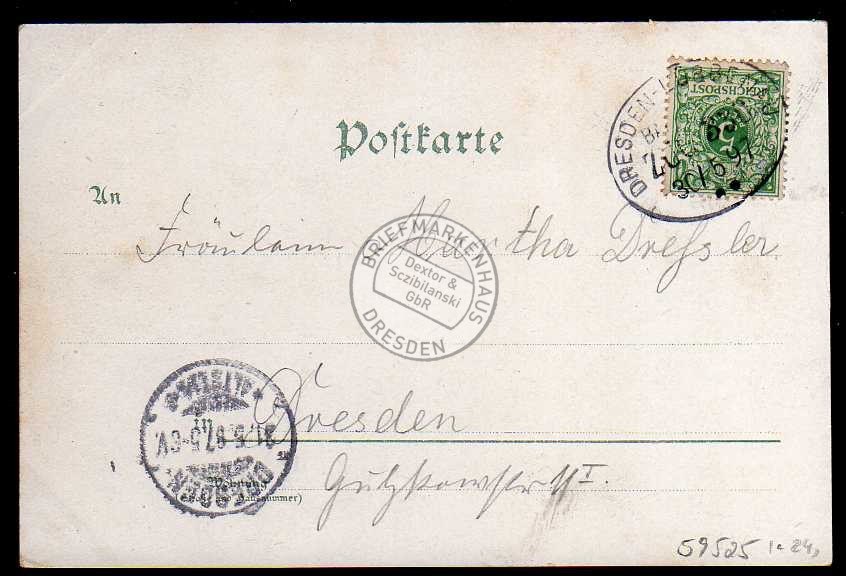 Postkarte
An
Fräulein Martha Dressler
Dresden
Gutzkowstr 11 I.
Wohnung
(Straße und Hausnummer)
REICHSPOST
5
DRESDEN-
30/5 97
ALTSTADT
31.5.97. 5-6V.
DRESDEN
BRIEFMARKENHAUS
Dextor &
Sczibilanski
GbR
DRESDEN
59525